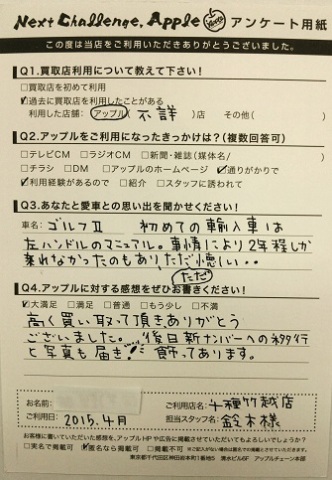 Next Challenge, Apple アンケート用紙
この度は当店をご利用いただきありがとうございました。
Q1.買取店利用について教えて下さい!
□買取店を初めて利用
☑過去に買取店を利用したことがある
利用した店舗: アップル( 不詳 )店 その他( )
Q2.アップルをご利用になったきっかけは?(複数回答可)
□テレビCM □ラジオCM □新聞・雑誌(媒体名/ )
□チラシ □DM □アップルのホームページ ☑通りがかりで
☑利用経験があるので □紹介 □スタッフに誘われて
Q3.あなたと愛車との思い出を聞かせください!
車名: ゴルフⅡ 初めての輸入車は
左ハンドルのマニュアル。事情により2年程しか
乗れなかったのもあり、ただ懐しい・・
ただ
Q4.アップルに対する感想をぜひお書きください!
☑大満足 □満足 □普通 □もう少し □不満
高く買い取って頂き、ありがとう
ございました。後日新ナンバーへの移行
と写真も届き!! 飾ってあります。
お名前:
ご利用日: 2015.4月
ご利用店名: 千種竹越店
担当スタッフ名: 鈴木様
お客様に書いていただいた感想を、アップルHPや広告に掲載させていただいてもよろしいでしょうか?
□実名で掲載可 ☑匿名なら掲載可 □掲載不可
東京都千代田区神田松永町1番地5 清水ビル6F アップルチェーン本部